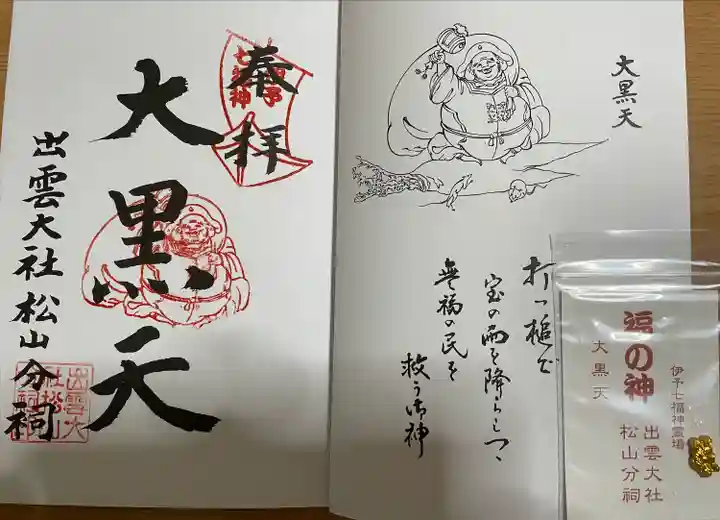 奉拝
伊予
七福神
大黒天
出雲大社松山分祠
出雲大
社松山
分祠
大黒天
打つ槌で
宝の雨を降らしつゝ
無福の民を
救う御神
福の神
大黒天
伊予七福神霊場
出雲大社
松山分祠